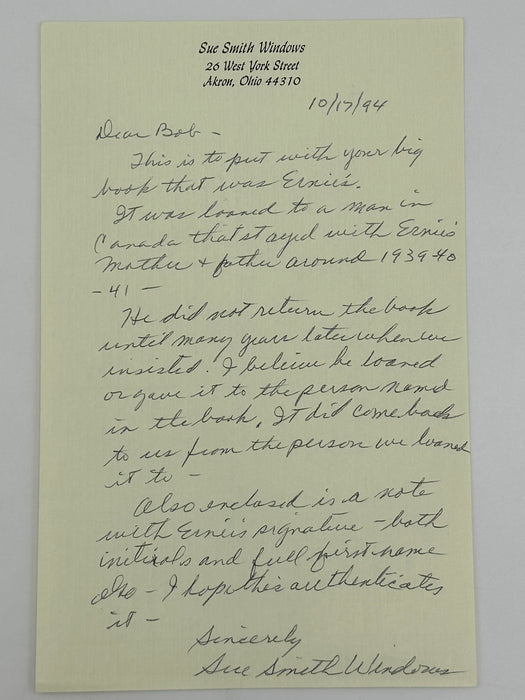 Sue Smith Windows
26 West York Street
Akron, Ohio 44310
10/17/94
Dear Bob -
This is to put with your big
book that was Ernie's.
It was loaned to a man in
Canada that stayed with Ernie's
Mother + father around 1939-40
- 41 -
He did not return the book
until many years later when we
insisted. I believe he loaned
or gave it to the person named
in the book. It did come back
to us from the person we loaned
it to -
Also enclosed is a note
with Ernie's signature - both
initials and full first name
also - I hope this authenticates
it -
Sincerely
Sue Smith Windows